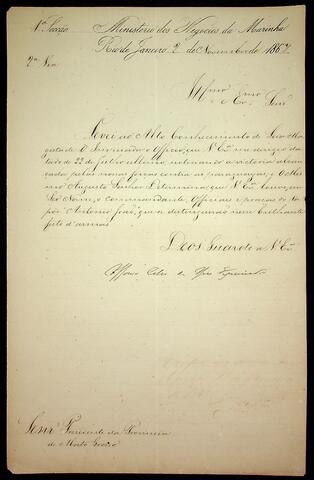 1ª Secção Ministerio dos Negocios da Marinha
Rio de Janeiro 2 de Novembro de 1867.
2ª Via
Illmo e Exmo Senr
Levei ao Alto Conhecimento de Sua Mages
tade O Imperador o Officio, que V. Exª me dirigio da
tado de 22 de Julho ultimo, noticiando a victoria alcan
çada pelas nossas forças contra os paraguayos; e O Mes
mo Augusto Senhor Determina que V. Exª louve, em
Seo Nome, o commandante, Officiaes e praças do va
por Antonio João, que se distinguirão nesse brilhante
feito d'armas.
Deos Guarde a V. Exª
Affonso Celso de Assis Figueiredo
Senr Presidente da Provincia
de Matto Grosso